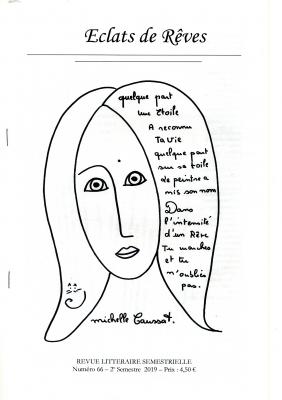 Eclats de Rêves
quelque part
une étoile
A reconnu
Ta vie
quelque part
sur sa toile
de peintre a
mis son nom
Dans
l'intensité
d'un Rêve
Tu marches
et tu
n'oublies
pas.
michelle Caussat.
REVUE LITTERAIRE SEMESTRIELLE
Numéro 66 – 2e Semestre 2019 – Prix : 4,50 €